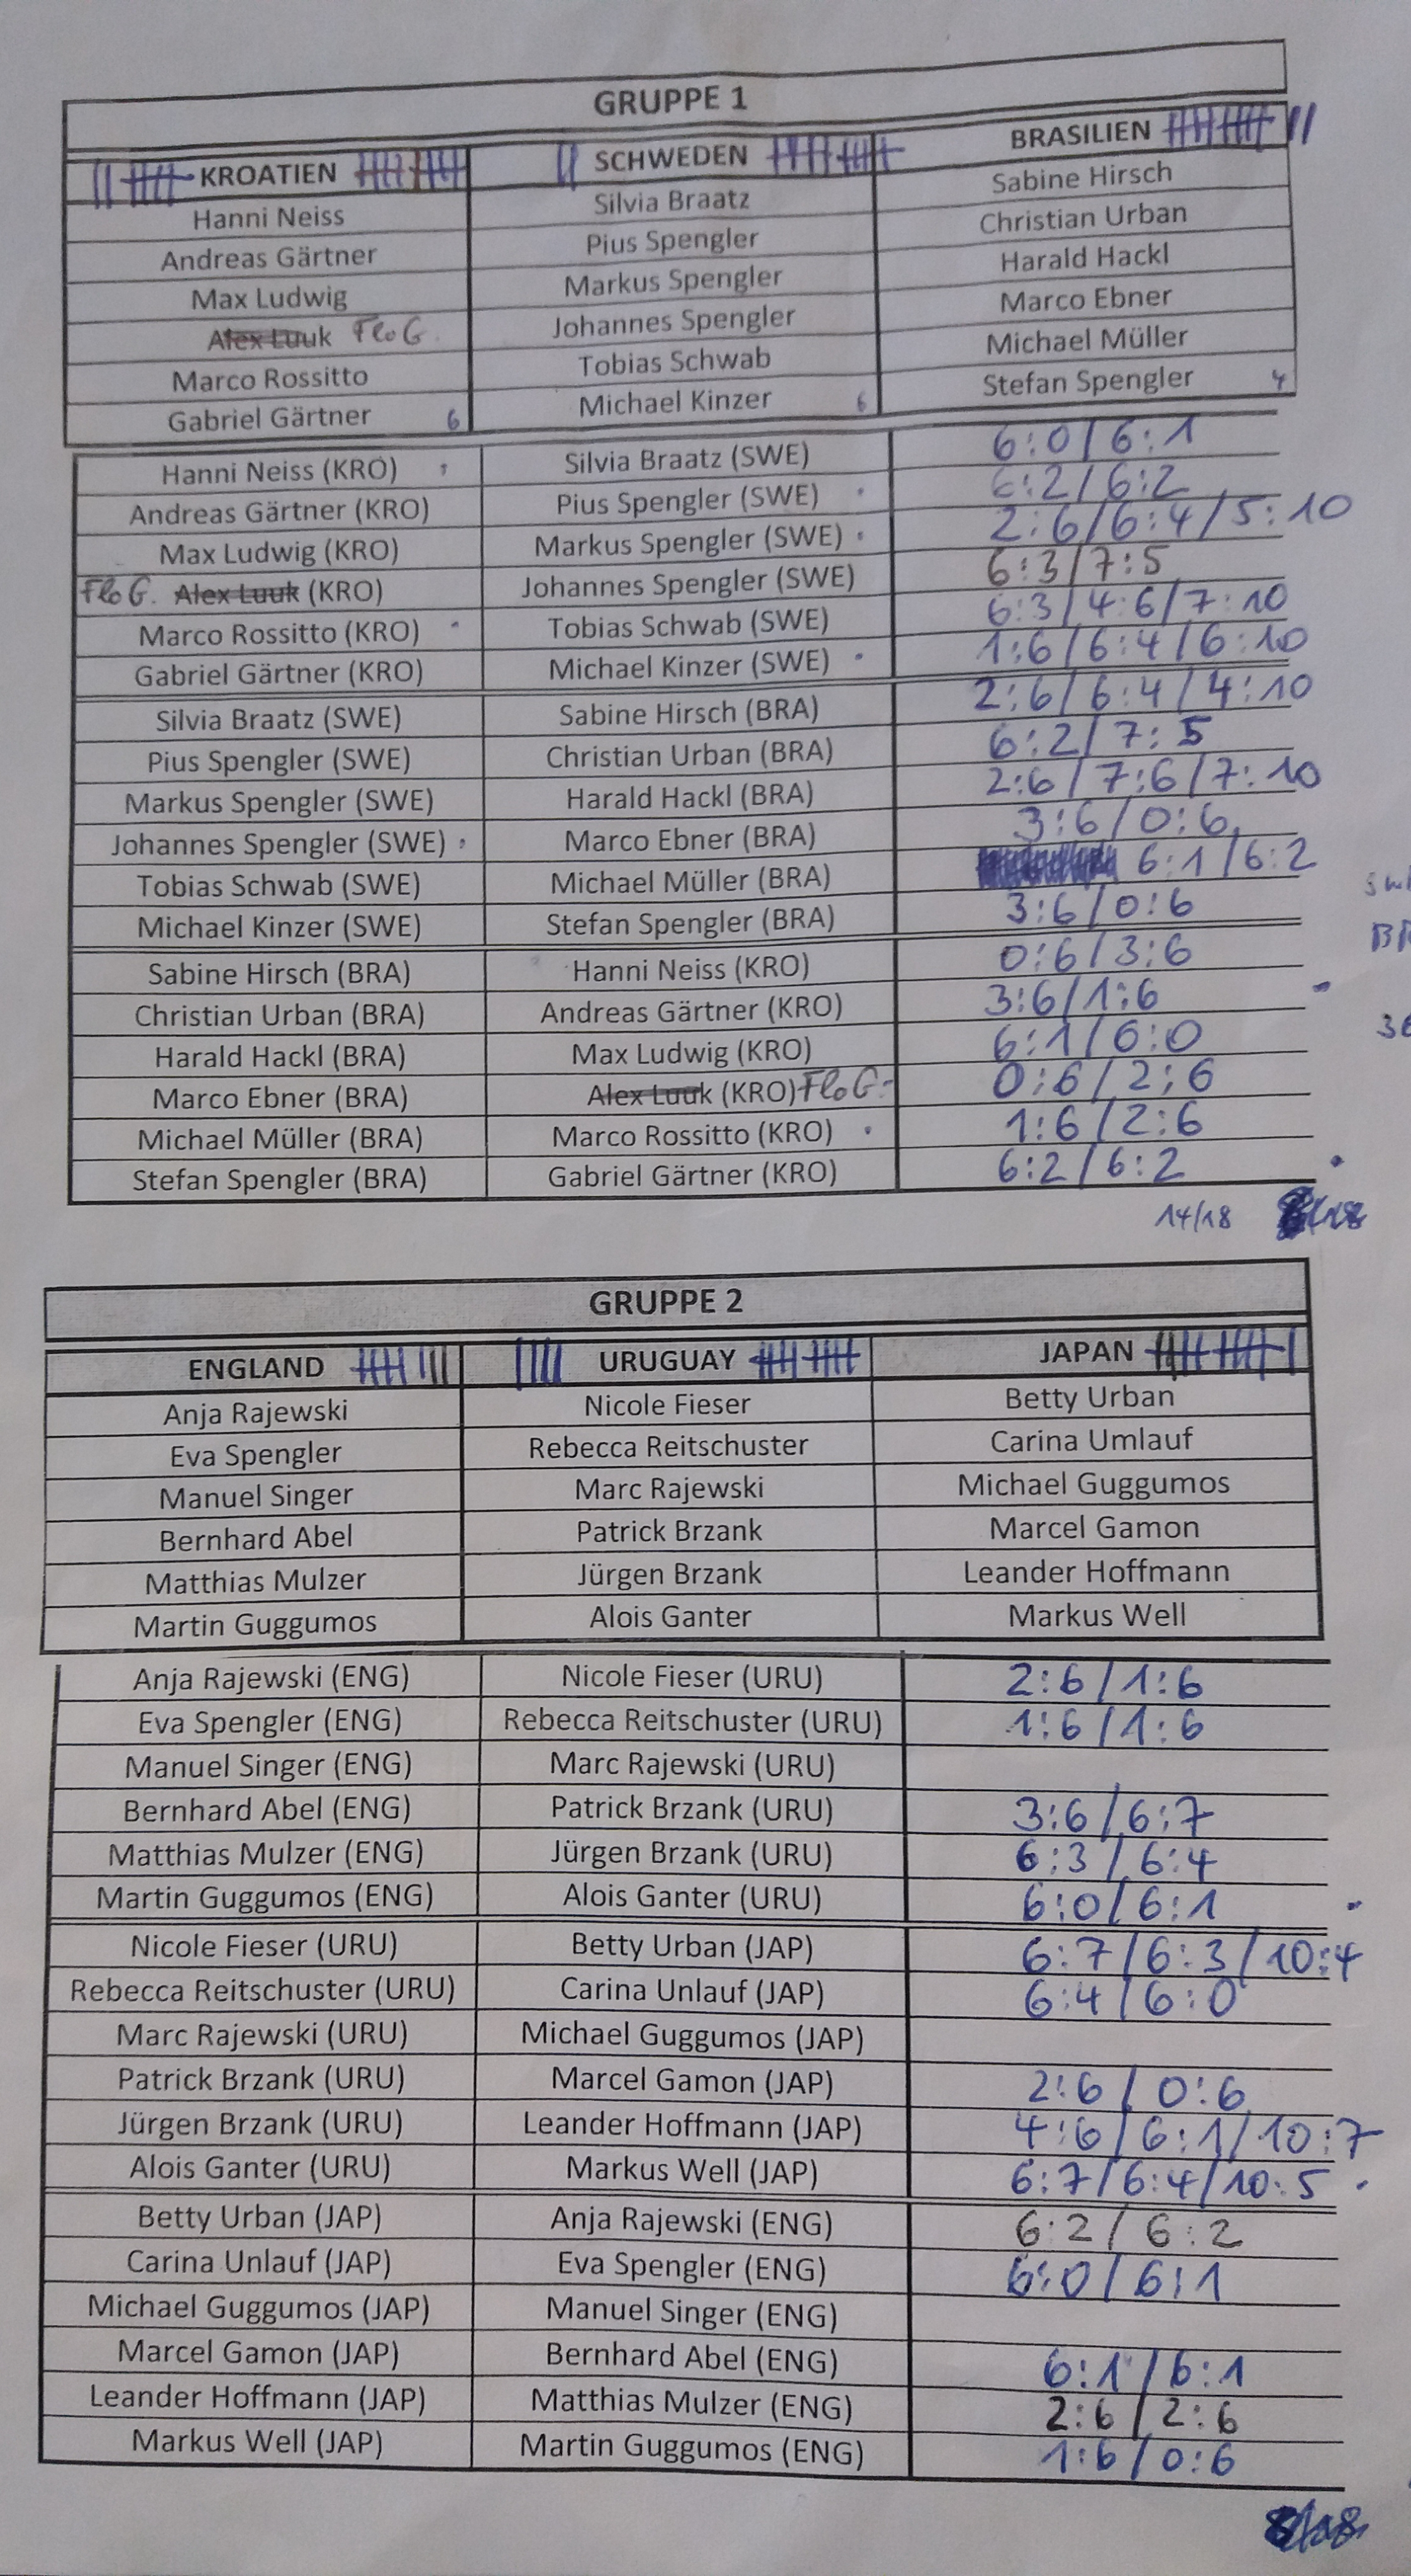 GRUPPE 1
KROATIEN SCHWEDEN BRASILIEN
Hanni Neiss Silvia Braatz Sabine Hirsch
Andreas Gärtner Pius Spengler Christian Urban
Max Ludwig Markus Spengler Harald Hackl
Alex Luuk Flo G. Johannes Spengler Marco Ebner
Marco Rossitto Tobias Schwab Michael Müller
Gabriel Gärtner 6 Michael Kinzer 6 Stefan Spengler 4
Hanni Neiss (KRO) Silvia Braatz (SWE) 6:0 / 6:1
Andreas Gärtner (KRO) Pius Spengler (SWE) 6:2 / 6:2
Max Ludwig (KRO) Markus Spengler (SWE) 2:6 / 6:4 / 5:10
Flo G. Alex Luuk (KRO) Johannes Spengler (SWE) 6:3 / 7:5
Marco Rossitto (KRO) Tobias Schwab (SWE) 6:3 / 4:6 / 7:10
Gabriel Gärtner (KRO) Michael Kinzer (SWE) 1:6 / 6:4 / 6:10
Silvia Braatz (SWE) Sabine Hirsch (BRA) 2:6 / 6:4 / 4:10
Pius Spengler (SWE) Christian Urban (BRA) 6:2 / 7:5
Markus Spengler (SWE) Harald Hackl (BRA) 2:6 / 7:6 / 7:10
Johannes Spengler (SWE) Marco Ebner (BRA) 3:6 / 0:6
Tobias Schwab (SWE) Michael Müller (BRA) 6:1 / 6:2
Michael Kinzer (SWE) Stefan Spengler (BRA) 3:6 / 0:6
Sabine Hirsch (BRA) Hanni Neiss (KRO) 0:6 / 3:6
Christian Urban (BRA) Andreas Gärtner (KRO) 3:6 / 1:6
Harald Hackl (BRA) Max Ludwig (KRO) 6:1 / 6:0
Marco Ebner (BRA) Alex Luuk (KRO) Flo G. 0:6 / 2:6
Michael Müller (BRA) Marco Rossitto (KRO) 1:6 / 2:6
Stefan Spengler (BRA) Gabriel Gärtner (KRO) 6:2 / 6:2
14/18
GRUPPE 2
ENGLAND URUGUAY JAPAN
Anja Rajewski Nicole Fieser Betty Urban
Eva Spengler Rebecca Reitschuster Carina Umlauf
Manuel Singer Marc Rajewski Michael Guggumos
Bernhard Abel Patrick Brzank Marcel Gamon
Matthias Mulzer Jürgen Brzank Leander Hoffmann
Martin Guggumos Alois Ganter Markus Well
Anja Rajewski (ENG) Nicole Fieser (URU) 2:6 / 1:6
Eva Spengler (ENG) Rebecca Reitschuster (URU) 1:6 / 1:6
Manuel Singer (ENG) Marc Rajewski (URU)
Bernhard Abel (ENG) Patrick Brzank (URU) 3:6 / 6:7
Matthias Mulzer (ENG) Jürgen Brzank (URU) 6:3 / 6:4
Martin Guggumos (ENG) Alois Ganter (URU) 6:0 / 6:1
Nicole Fieser (URU) Betty Urban (JAP) 6:7 / 6:3 / 10:4
Rebecca Reitschuster (URU) Carina Unlauf (JAP) 6:4 / 6:0
Marc Rajewski (URU) Michael Guggumos (JAP)
Patrick Brzank (URU) Marcel Gamon (JAP) 2:6 / 0:6
Jürgen Brzank (URU) Leander Hoffmann (JAP) 4:6 / 6:1 / 10:7
Alois Ganter (URU) Markus Well (JAP) 6:7 / 6:4 / 10:5
Betty Urban (JAP) Anja Rajewski (ENG) 6:2 / 6:2
Carina Unlauf (JAP) Eva Spengler (ENG) 6:0 / 6:1
Michael Guggumos (JAP) Manuel Singer (ENG)
Marcel Gamon (JAP) Bernhard Abel (ENG) 6:1 / 6:1
Leander Hoffmann (JAP) Matthias Mulzer (ENG) 2:6 / 2:6
Markus Well (JAP) Martin Guggumos (ENG) 1:6 / 0:6